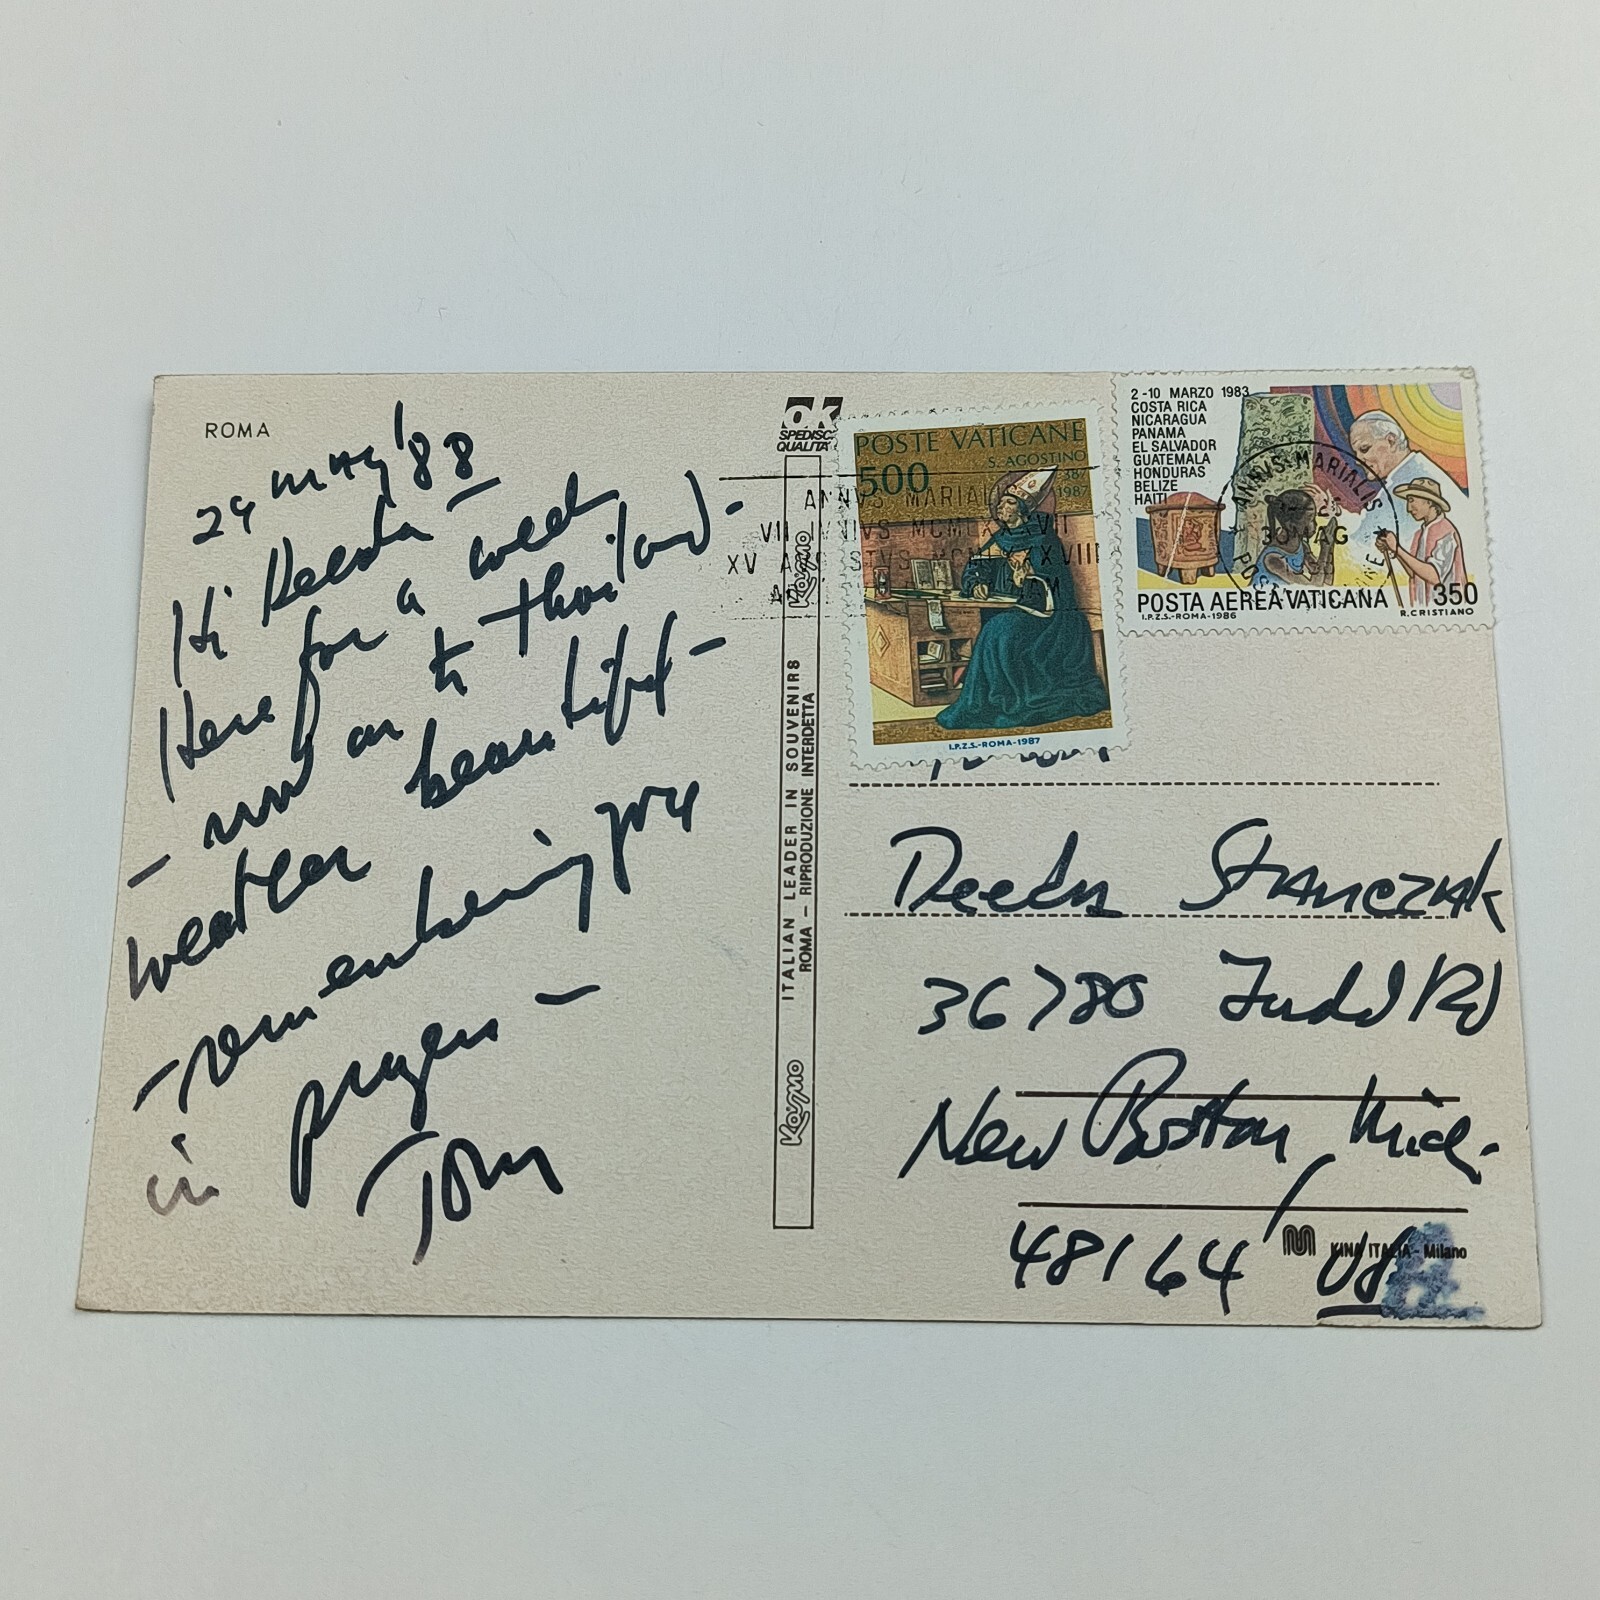 ROMA
29 May '88
Hi Deeda –
Here for a week
– now on to Thailand –
weather beautiful –
– remembering you
in prayers –
Tom
OK
SPEDISC
QUALITA'
Kosmo
ITALIAN LEADER IN SOUVENIRS
ROMA – RIPRODUZIONE INTERDETTA
Kosmo
POSTE VATICANE
500
S. AGOSTINO
387
1987
I.P.Z.S.-ROMA-1987
ANNVS MARIALIS
VII IVNIVS
2-10 MARZO 1983
COSTA RICA
NICARAGUA
PANAMA
EL SALVADOR
GUATEMALA
HONDURAS
BELIZE
HAITI
ANNVS MARIALIS
30 MAG
POSTA AEREA VATICANA 350
I.P.Z.S.-ROMA-1986
R. CRISTIANO
Deeda Stanczak
36780 Judd Rd
New Boston, Mich.
48164 USA
KINA ITALIA - Milano